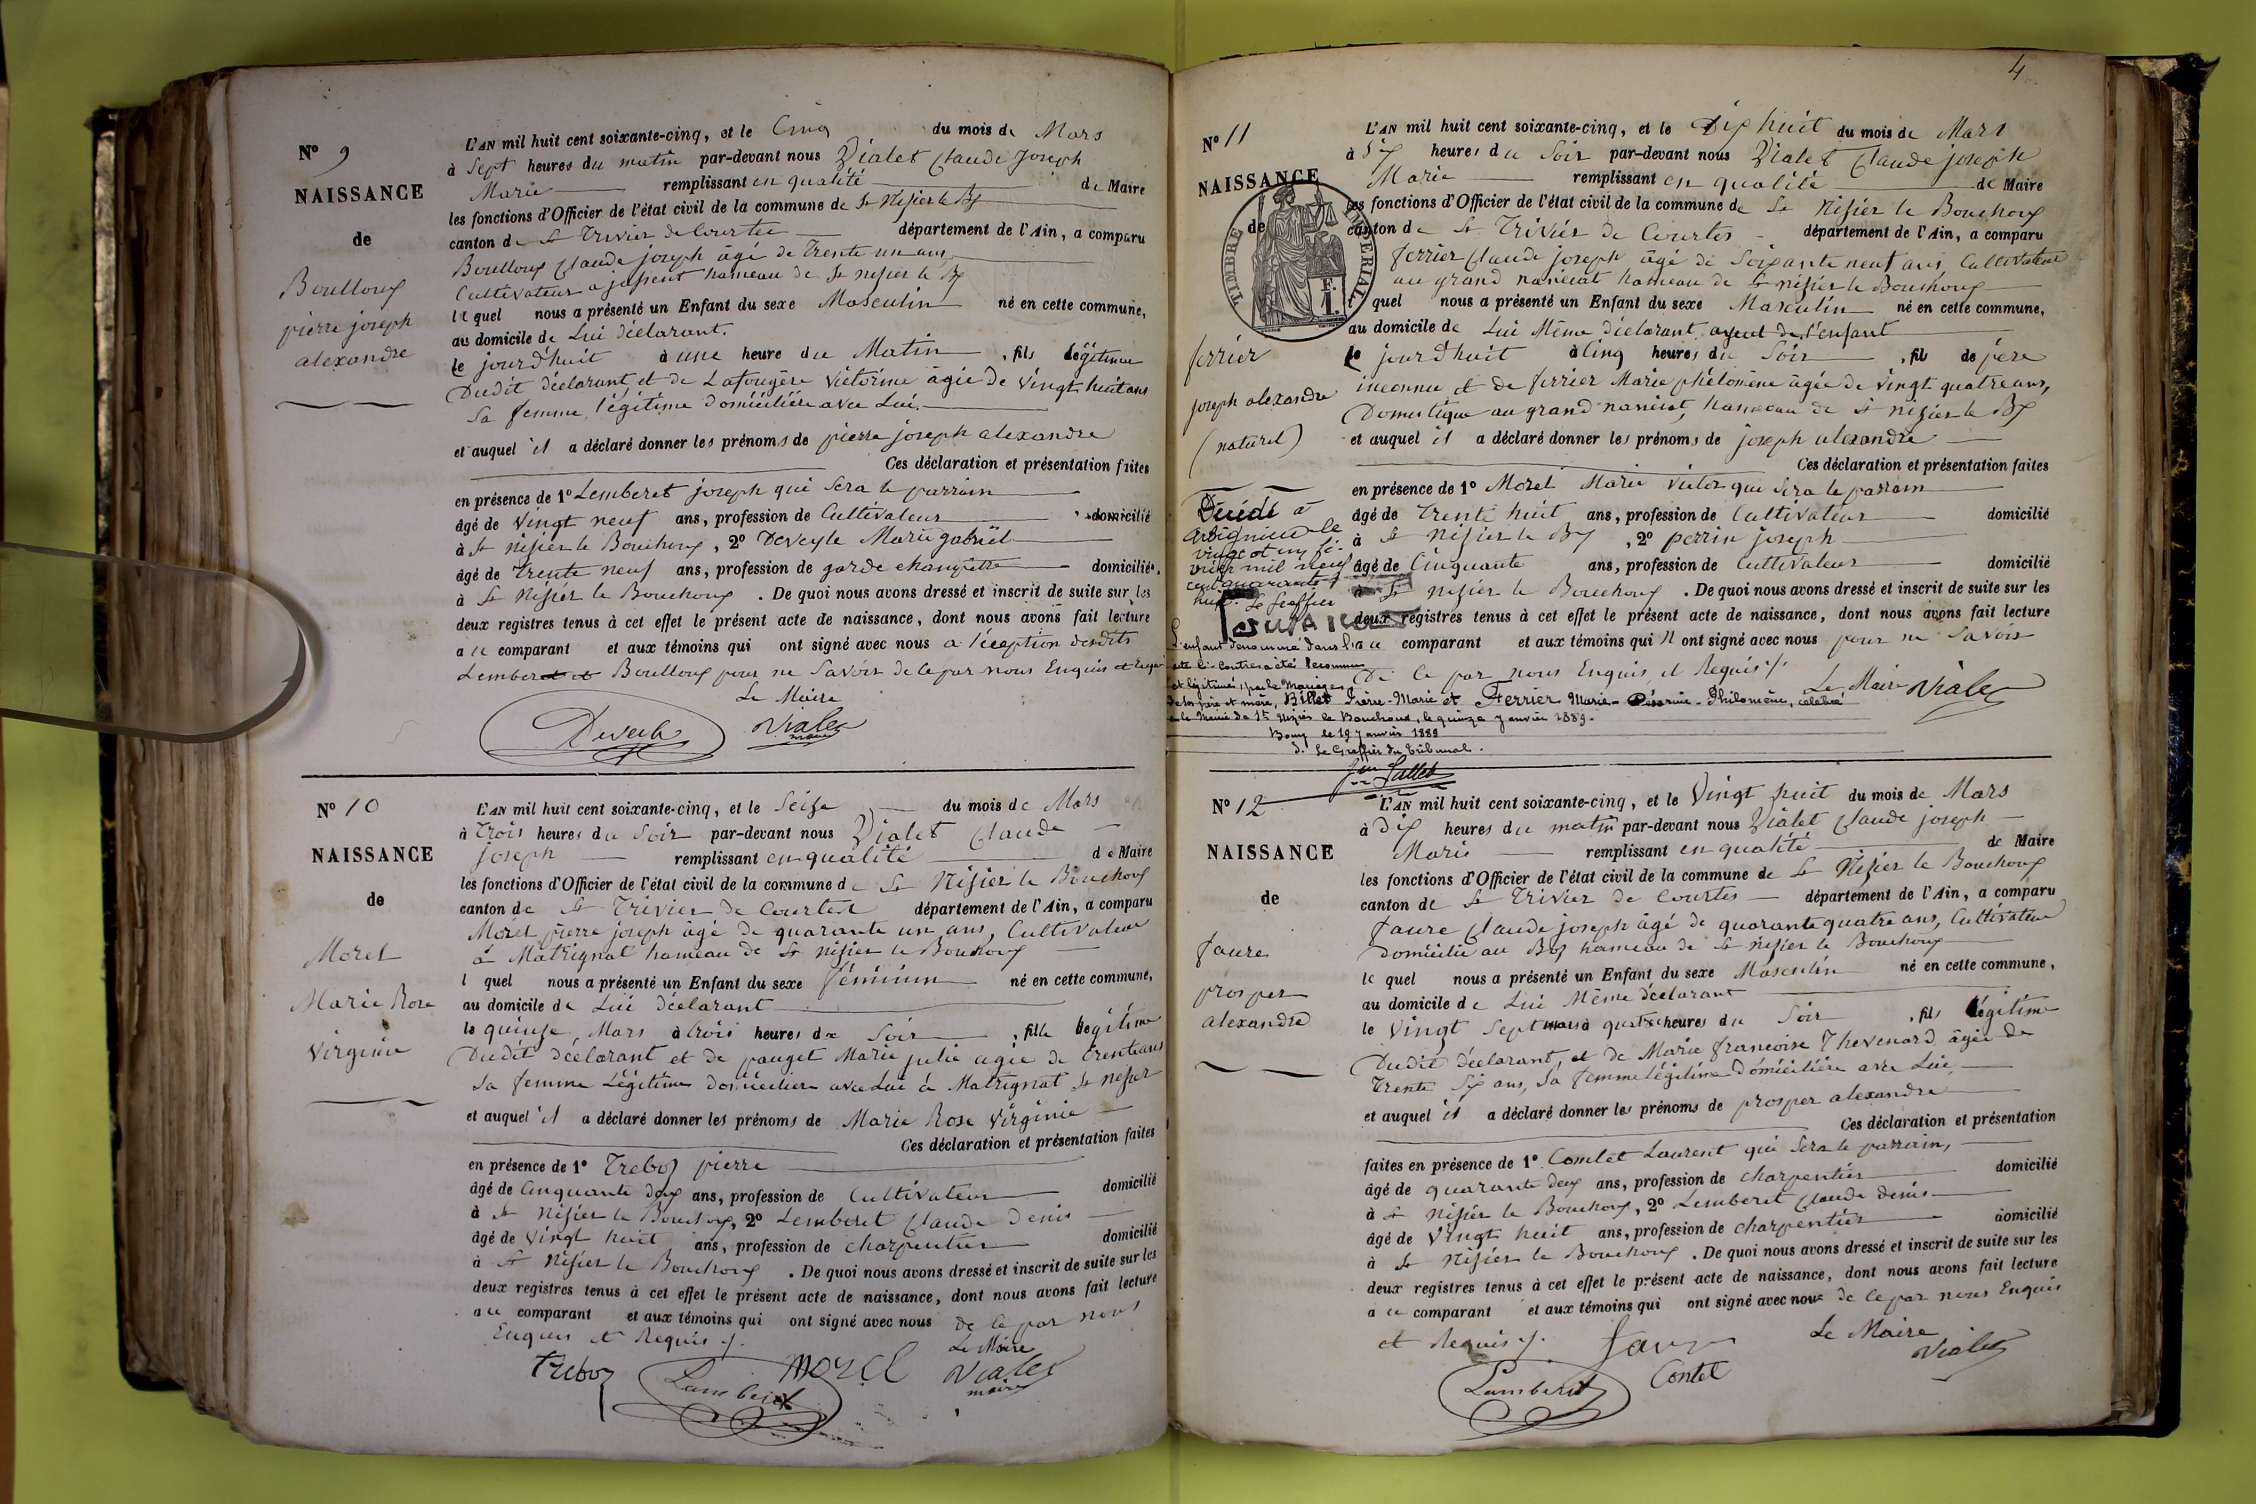 N° 9
NAISSANCE
de
Boulloux
pierre joseph
alexandre
L'AN mil huit cent soixante-cinq, et le Cinq du mois de Mars
à Sept heures du matin par-devant nous Vialet Claude Joseph
Marie remplissant en qualité de Maire
les fonctions d'Officier de l'état civil de la commune de St Nizier le Bx
canton de St Trivier de Courtes département de l'Ain, a comparu
Boulloux Claude joseph âgé de trente un ans,
Cultivateur à hameau de St nizier le Bx
le quel nous a présenté un Enfant du sexe Masculin né en cette commune,
au domicile de Lui déclarant.
le jourd'huit à une heure du Matin, fils légitime
Dudit déclarant, et de Lafougère Victorine âgée de vingt huit ans
Sa femme légitime domiciliée avec Lui.
et auquel il a déclaré donner les prénoms de pierre joseph alexandre
Ces déclaration et présentation faites
en présence de 1° Lemberet joseph qui sera le parrain
âgé de vingt neuf ans, profession de Cultivateur domicilié
à St nizier le Bouchoux, 2° Deveyle Marie gabriël
âgé de trente neuf ans, profession de garde champêtre domicilié
à St Nizier le Bouchoux. De quoi nous avons dressé et inscrit de suite sur les
deux registres tenus à cet effet le présent acte de naissance, dont nous avons fait lecture
a ce comparant et aux témoins qui ont signé avec nous a l'éception desdits
Lemberet et Boulloux pour ne savoir de ce par nous Enquis et Requis
Le Maire
Deveyle Vialet
maire
N° 10
NAISSANCE
de
Morel
Marie Rose
Virginie
L'AN mil huit cent soixante-cinq, et le Seize du mois de Mars
à trois heures du Soir par-devant nous Vialet Claude
joseph remplissant en qualité de Maire
les fonctions d'Officier de l'état civil de la commune de St Nizier le Bouchoux
canton de St Trivier de Courtes département de l'Ain, a comparu
Morel pierre joseph âgé de quarante un ans, Cultivateur
à Matrignat hameau de St nizier le Bouchoux
l quel nous a présenté un Enfant du sexe féminin né en cette commune,
au domicile de Lui déclarant
le quinze Mars à trois heures du Soir, fille légitime
Dudit déclarant et de pauget Marie julie agée de trente ans
Sa femme Légitime domiciliée avec Lui à Matrignat St nizier
et auquel il a déclaré donner les prénoms de Marie Rose Virginie
Ces déclaration et présentation faites
en présence de 1° Treboz pierre
âgé de Cinquante deux ans, profession de Cultivateur domicilié
à St Nizier le Bouchoux, 2° Lemberet Claude Denis
âgé de vingt huit ans, profession de charpentier domicilié
à St Nizier le Bouchoux. De quoi nous avons dressé et inscrit de suite sur les
deux registres tenus à cet effet le présent acte de naissance, dont nous avons fait lecture
a ce comparant et aux témoins qui ont signé avec nous de ce par nous
Enquis et Requis ./.
Le Maire
Treboz Lamberet morel Vialet
maire
4
N° 11
NAISSANCE
de
TIMBRE IMPÉRIAL
1 F.
ferrier
joseph alexandre
(naturel)
Décédé à
Arbignieu le
vingt et un fé-
vrier mil neuf
cent quarante
huit. Le Greffier
L'AN mil huit cent soixante-cinq, et le Dix huit du mois de Mars
à Six heures du Soir par-devant nous Vialet Claude joseph
Marie remplissant en qualité de Maire
les fonctions d'Officier de l'état civil de la commune de St Nizier le Bouchoux
canton de St Trivier de Courtes département de l'Ain, a comparu
ferrier Claude joseph âgé de Soixante neuf ans, Cultivateur
au grand naneiat hameau de St nizier le Bouchoux
quel nous a présenté un Enfant du sexe Masculin né en cette commune,
au domicile de Lui Même déclarant ayeul de l'enfant
le jourd'huit à Cinq heures du Soir, fils de père
inconnu et de ferrier Marie phélomène âgée de vingt quatre ans,
Domestique au grand naneiat, hameau de St nizier le Bx
et auquel il a déclaré donner les prénoms de joseph alexandre
Ces déclaration et présentation faites
en présence de 1° Morel Marie victor qui sera le parrain
âgé de trente huit ans, profession de Cultivateur domicilié
à St Nizier le Bx, 2° perrin joseph
âgé de Cinquante ans, profession de Cultivateur domicilié
à St nizier le Bouchoux. De quoi nous avons dressé et inscrit de suite sur les
deux registres tenus à cet effet le présent acte de naissance, dont nous avons fait lecture
a ce comparant et aux témoins qui n ont signé avec nous pour ne savoir
De ce par nous Enquis et Requis ./.
Le Maire Vialet
L'enfant dénommé dans l'
acte ci-contre a été reconnu
et légitimé, par le Mariage
de ses père et mère, Billet Pierre-Marie et Ferrier Marie- -Philomène, célébré
à la Mairie de St Nizier le Bouchoux, le quinze Janvier 1889.
Bourg le 19 Janvier 1889
Le Greffier du tribunal.
N° 12
NAISSANCE
de
Faure
prosper
alexandre
L'AN mil huit cent soixante-cinq, et le Vingt huit du mois de Mars
à Dix heures du matin par-devant nous Vialet Claude joseph
Marie remplissant en qualité de Maire
les fonctions d'Officier de l'état civil de la commune de St Nizier le Bouchoux
canton de St Trivier de Courtes département de l'Ain, a comparu
Faure Claude joseph âgé de quarante quatre ans, Cultivateur
Domicilié au hameau de St nizier le Bouchoux
le quel nous a présenté un Enfant du sexe Masculin né en cette commune,
au domicile de Lui Même déclarant
le Vingt Sept mars à quatre heures du Soir, fils légitime
Dudit déclarant, et de Marie francoise Thevenard âgée de
trente Six ans, Sa femme légitime Domiciliée avec Lui,
et auquel il a déclaré donner les prénoms de prosper alexandre
Ces déclaration et présentation
faites en présence de 1° Contet Laurent qui Sera le parrain,
âgé de quarante deux ans, profession de charpentier domicilié
à St Nizier le Bouchoux, 2° Lemberet Claude denis
âgé de Vingt huit ans, profession de charpentier domicilié
à St Nizier le Bouchoux. De quoi nous avons dressé et inscrit de suite sur les
deux registres tenus à cet effet le présent acte de naissance, dont nous avons fait lecture
a ce comparant et aux témoins qui ont signé avec nous de ce par nous Enquis
et Requis ./.
Le Maire
Faure Vialet
Lamberet Contet